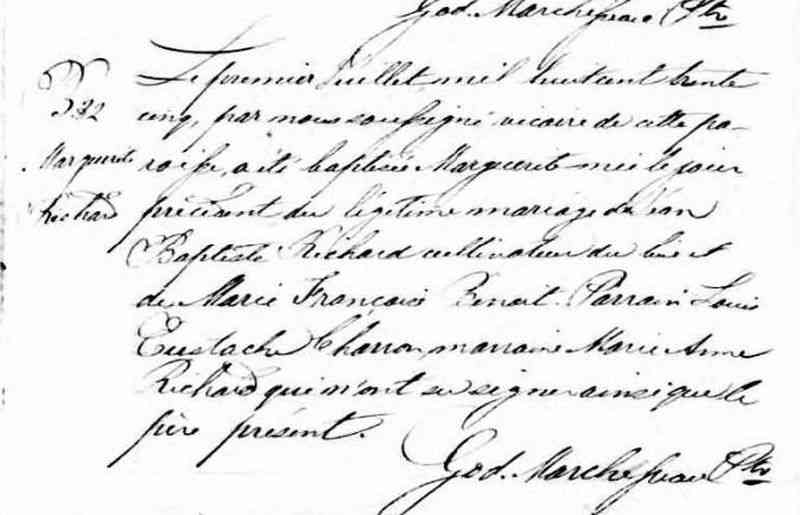 God. Marchesseau Ptre
Le premier Juillet mil huit cent trente
B 32
cinq, par nous soussigné vicaire de cette pa-
Marguerite
roisse, a été baptisée Marguerite née le jour
Richard
précédent du légitime mariage de Jean
Baptiste Richard cultivateur du lieu et
de Marie Françoise Benoit. Parrain Louis
Eustache Charron, marraine Marie Anne
Richard qui n'ont su signer ainsi que le
père présent.
God. Marchesseau Ptre